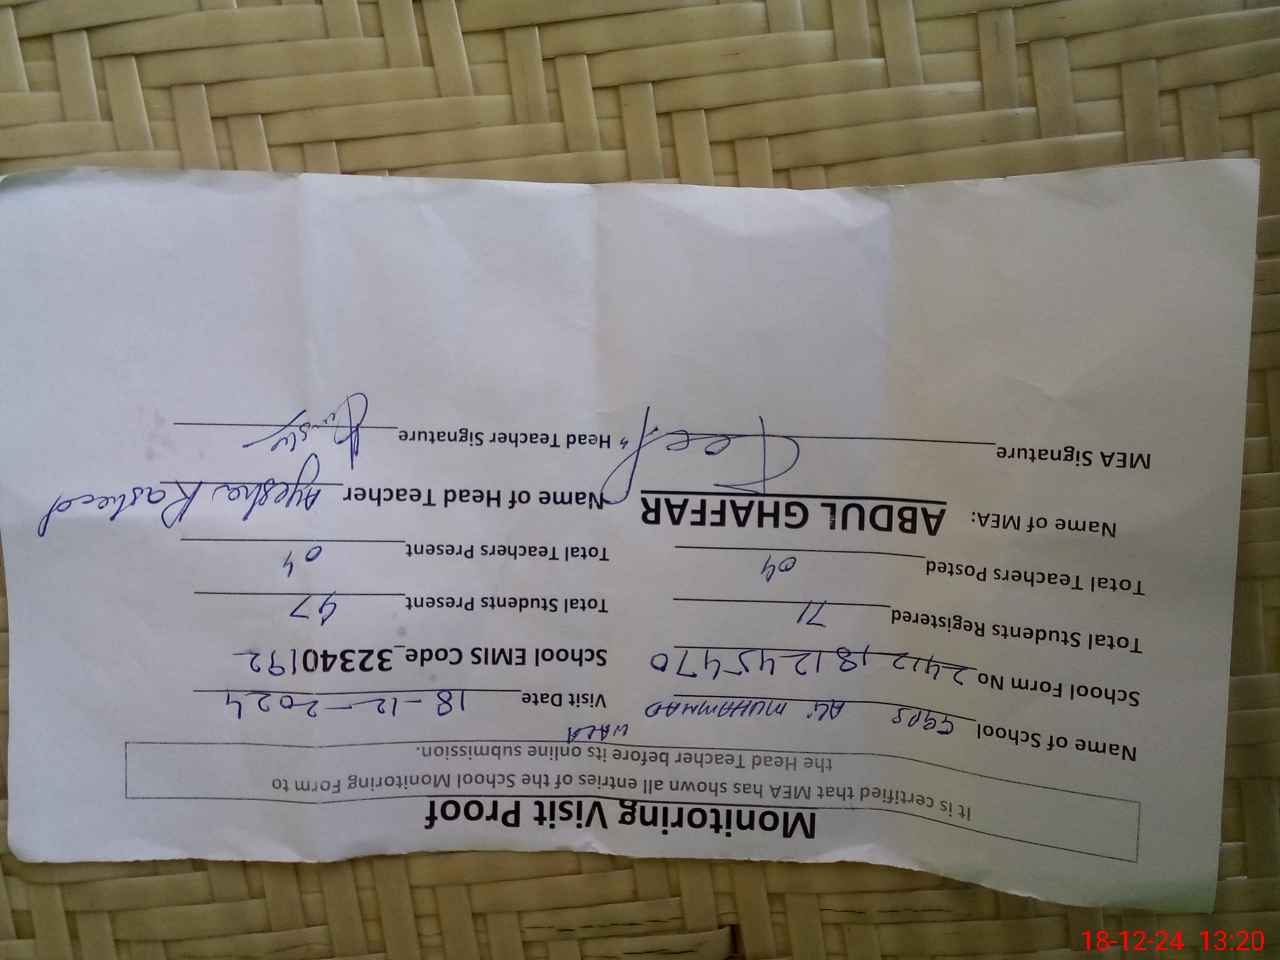 Monitoring Visit Proof
It is certified that MEA has shown all entries of the School Monitoring Form to
the Head Teacher before its online submission.
Name of School GGPS ALI MUHAMMAD WALA Visit Date 18-12-2024
School Form No 2412181245470 School EMIS Code_32340192
Total Students Registered 71 Total Students Present 47
Total Teachers Posted 04 Total Teachers Present 04
Name of MEA: ABDUL GHAFFAR Name of Head Teacher Ayesha Rasheed
MEA Signature Head Teacher Signature
18-12-24 13:20